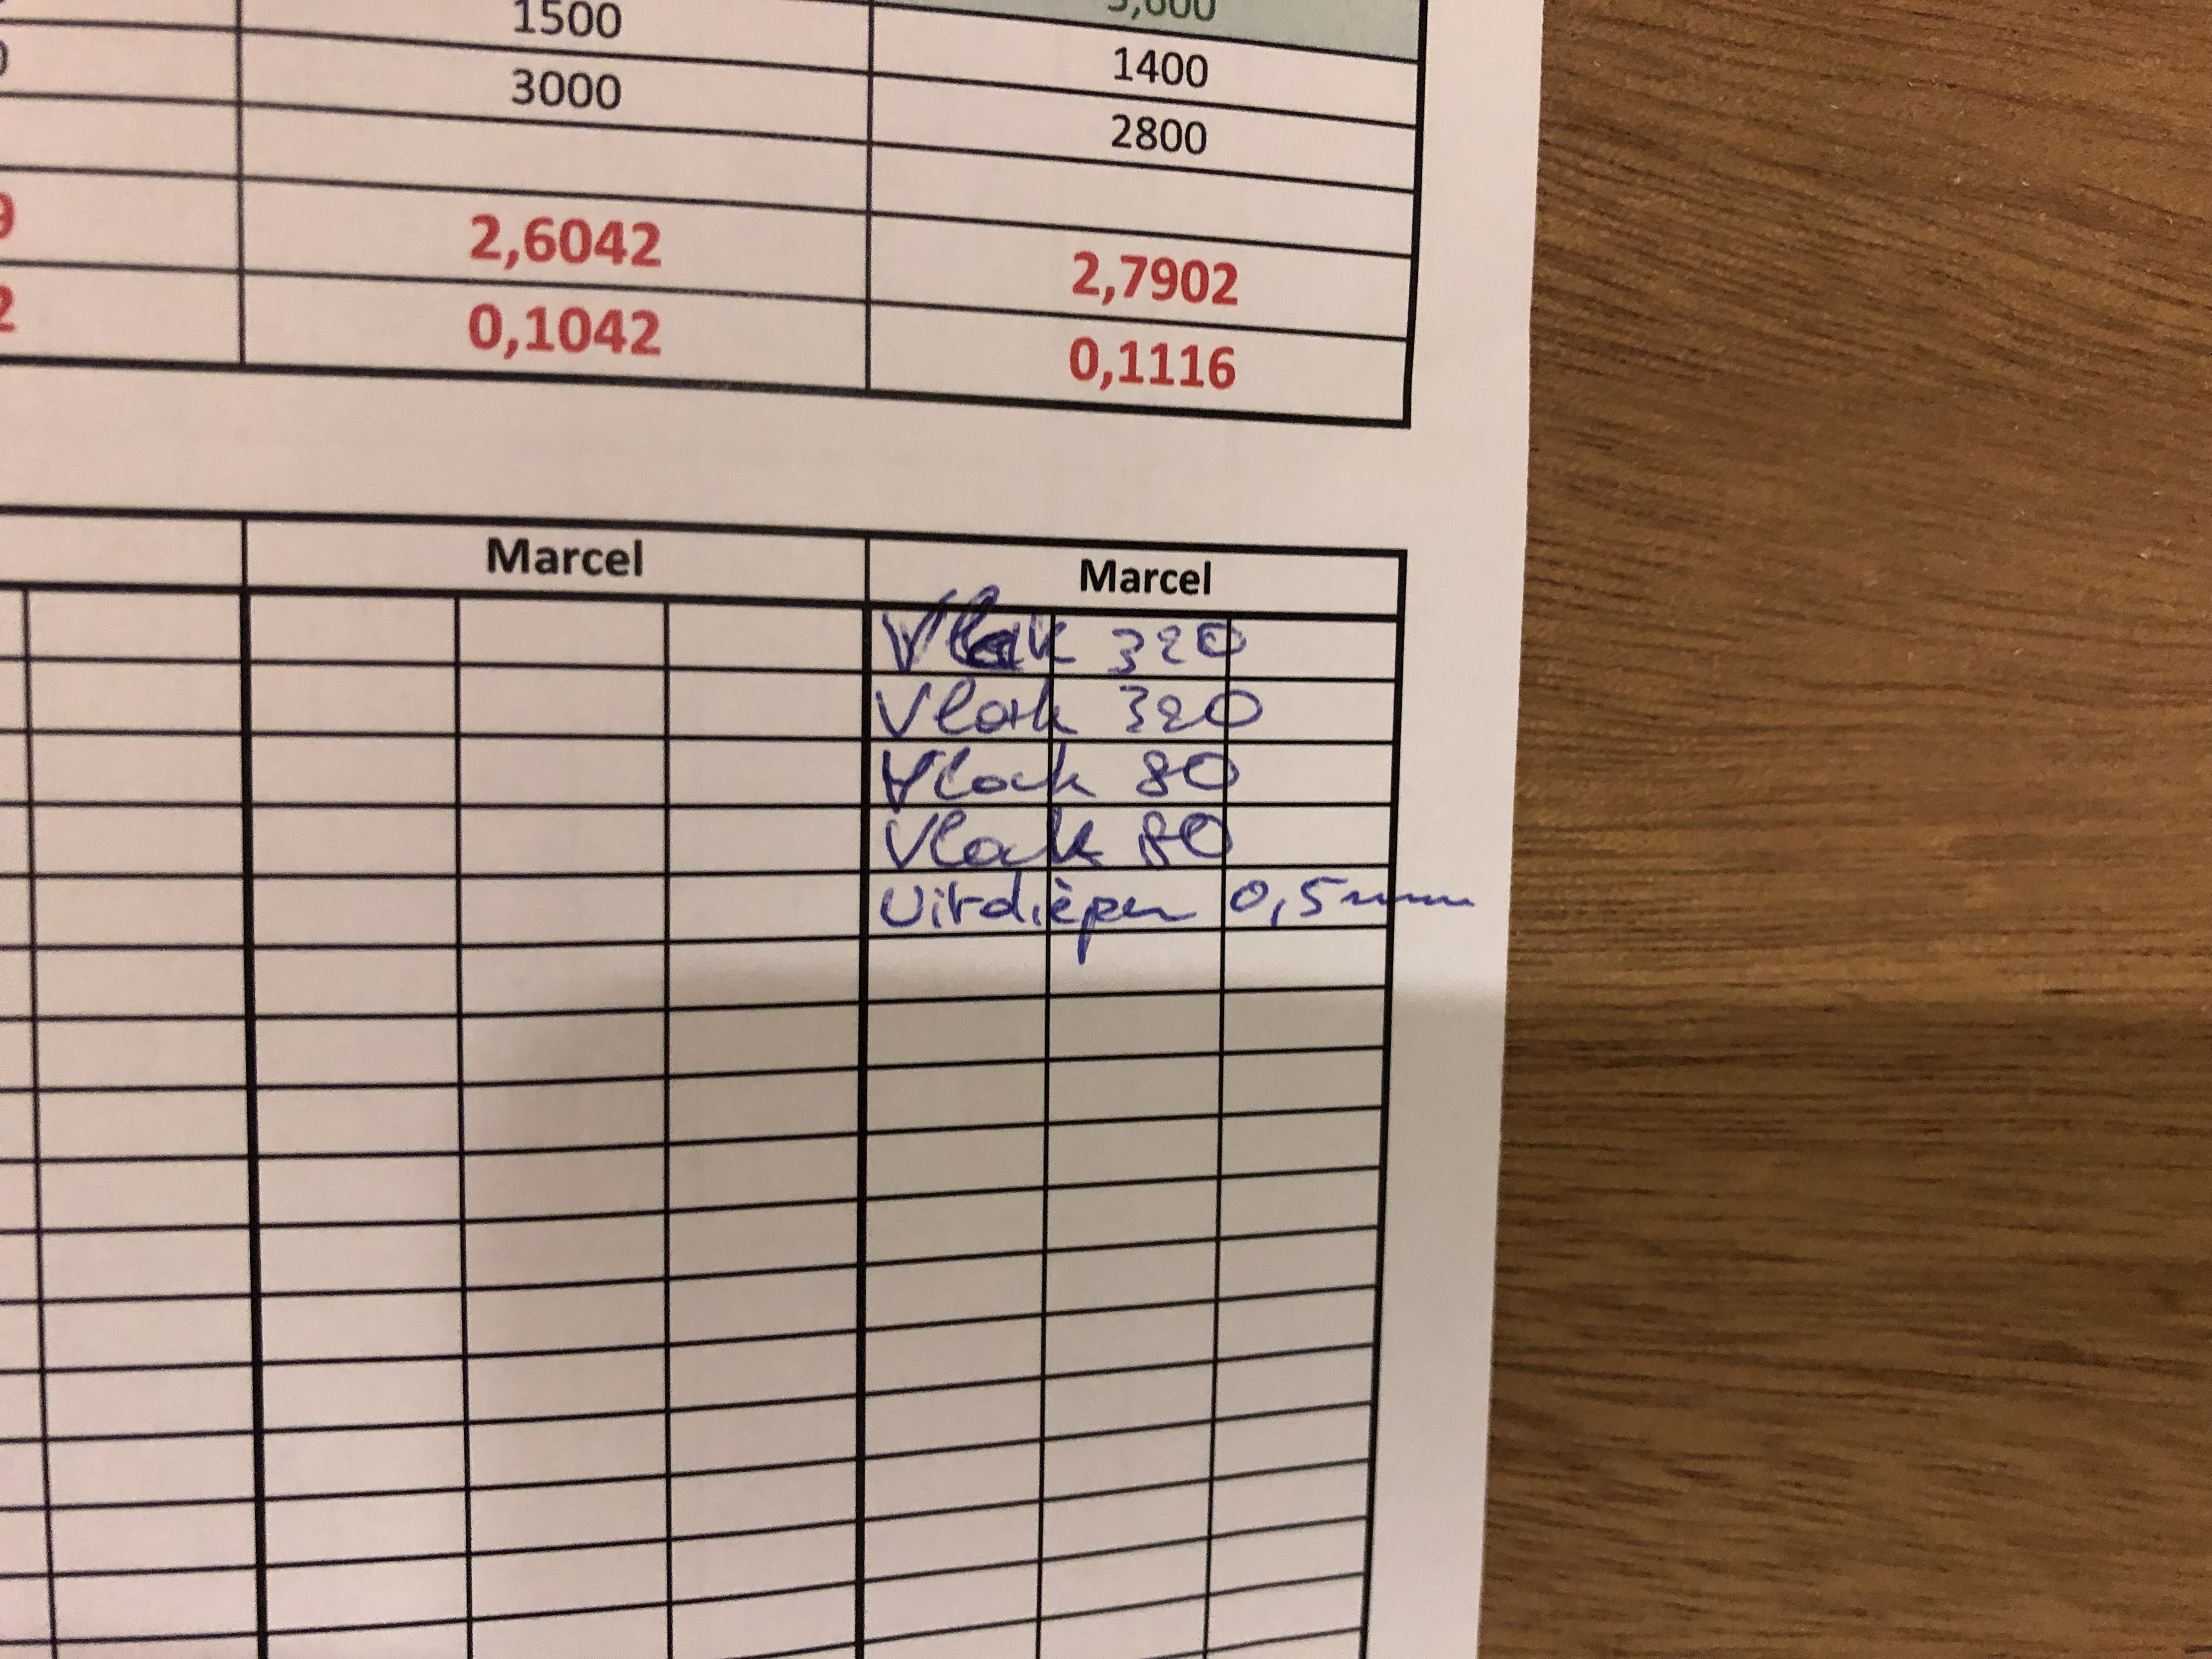 1500
1400
3000
2800
2,6042
2,7902
0,1042
0,1116
Marcel
Marcel
Vlak 320
Vlak 320
Vlak 80
Vlak 80
Uitdiepen 0,5mm